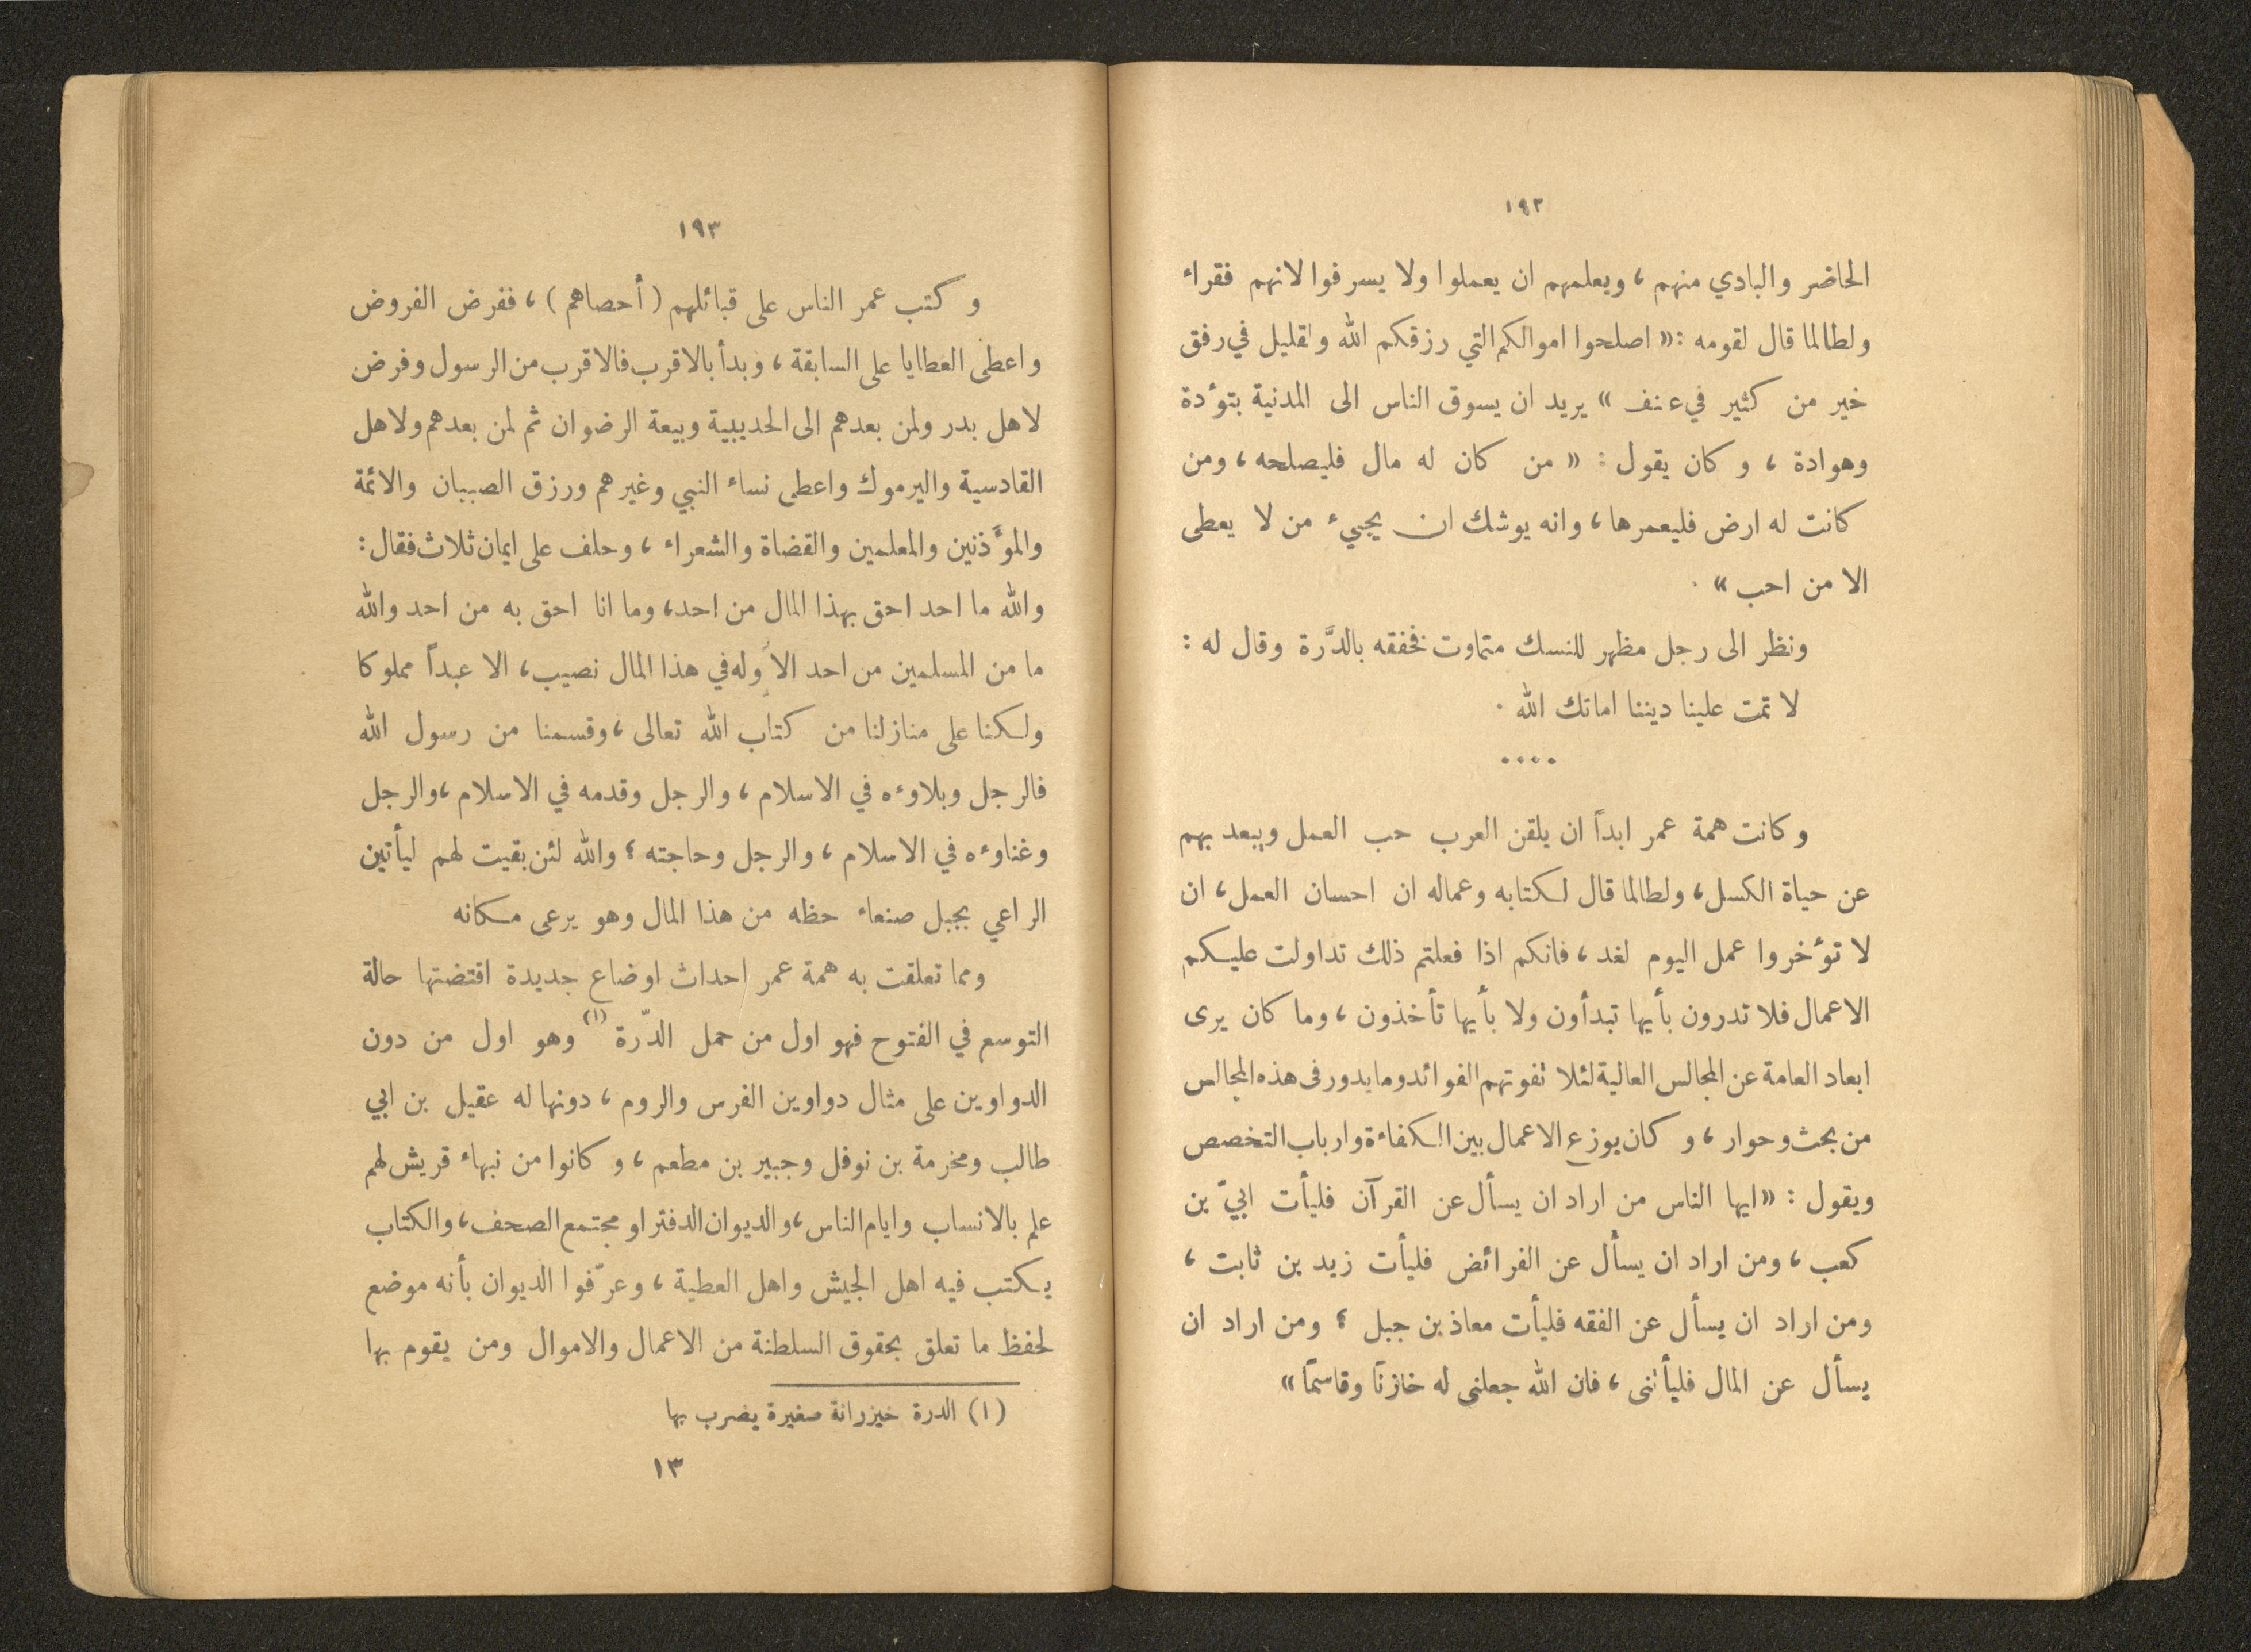 ١٩٢
الحاضر والبادي منهم ، ويعلمهم ان يعملوا ولا يسرفوا لانهم فقراء
ولطالما قال لقومه : « اصلحوا اموالكم التي رزقكم الله ولقليل في رفق
خير من كثير في عنف » يريد ان يسوق الناس الى المدنية بتؤدة
وهوادة ، وكان يقول : « من كان له مال فليصلحه ، ومن
كانت له ارض فليعمرها ، وانه يوشك ان يجيء من لا يعطى
الا من احب » .
ونظر الى رجل مظهر للنسك متماوت فخفقه بالدَّرة وقال له :
لا تمت علينا ديننا اماتك الله .
. . . .
وكانت همة عمر ابداً ان يلقن العرب حب العمل ويبعد بهم
عن حياة الكسل ، ولطالما قال لكتابه وعماله ان احسان العمل ، ان
لا تؤخروا عمل اليوم لغد ، فانكم اذا فعلتم ذلك تداولت عليكم
الاعمال فلا تدرون بأيها تبدأون ولا بأيها تأخذون ، وما كان يرى
ابعاد العامة عن المجالس العالية لئلا تفوتهم الفوائد وما يدور فى هذه المجالس
من بحث وحوار ، وكان يوزع الاعمال بين الكفاءة وارباب التخصص
ويقول : « ايها الناس من اراد ان يسأل عن القرآن فليأت ابيّ بن
كعب ، ومن اراد ان يسأل عن الفرائض فليأت زيد بن ثابت ،
ومن اراد ان يسأل عن الفقه فليأت معاذ بن جبل ؛ ومن اراد ان
يسأل عن المال فليأتنى ، فان الله جعلنى له خازناً وقاسماً »
١٩٣
وكتب عمر الناس على قبائلهم ( أحصاهم ) ، ففرض الفروض
واعطى العطايا على السابقة ، وبدأ بالاقرب فالاقرب من الرسول وفرض
لاهل بدر ولمن بعدهم الى الحديبية وبيعة الرضوان ثم لمن بعدهم ولاهل
القادسية واليرموك واعطى نساء النبي وغيرهم ورزق الصبيان والائمة
والمؤَذنين والمعلمين والقضاة والشعراء ، وحلف على ايمان ثلاث فقال :
والله ما احد احق بهذا المال من احد ، وما انا احق به من احد والله
ما من المسلمين من احد الا وله في هذا المال نصيب ، الا عبداً مملوكا
ولكنا على منازلنا من كتاب الله تعالى ، وقسمنا من رسول الله
فالرجل وبلاوءه في الاسلام ، والرجل وقدمه في الاسلام ، والرجل
وغناوءه في الاسلام ، والرجل وحاجته ؛ والله لئن بقيت لهم ليأتين
الراعي بجبل صنعاء حظه من هذا المال وهو يرعى مكانه
ومما تعلقت به همة عمر احداث اوضاع جديدة اقتضتها حالة
التوسع في الفتوح فهو اول من حمل الدّرة (١) وهو اول من دون
الدواوين على مثال دواوين الفرس والروم ، دونها له عقيل بن ابي
طالب ومخرمة بن نوفل وجبير بن مطعم ، وكانوا من نبهاء قريش لهم
علم بالانساب وايام الناس ، والديوان الدفتر او مجتمع الصحف ، والكتاب
يكتب فيه اهل الجيش واهل العطية ، وعرّفوا الديوان بأنه موضع
لحفظ ما تعلق بحقوق السلطنة من الاعمال والاموال ومن يقوم بها
(١) الدرة خيزرانة صغيرة يضرب بها
١٣